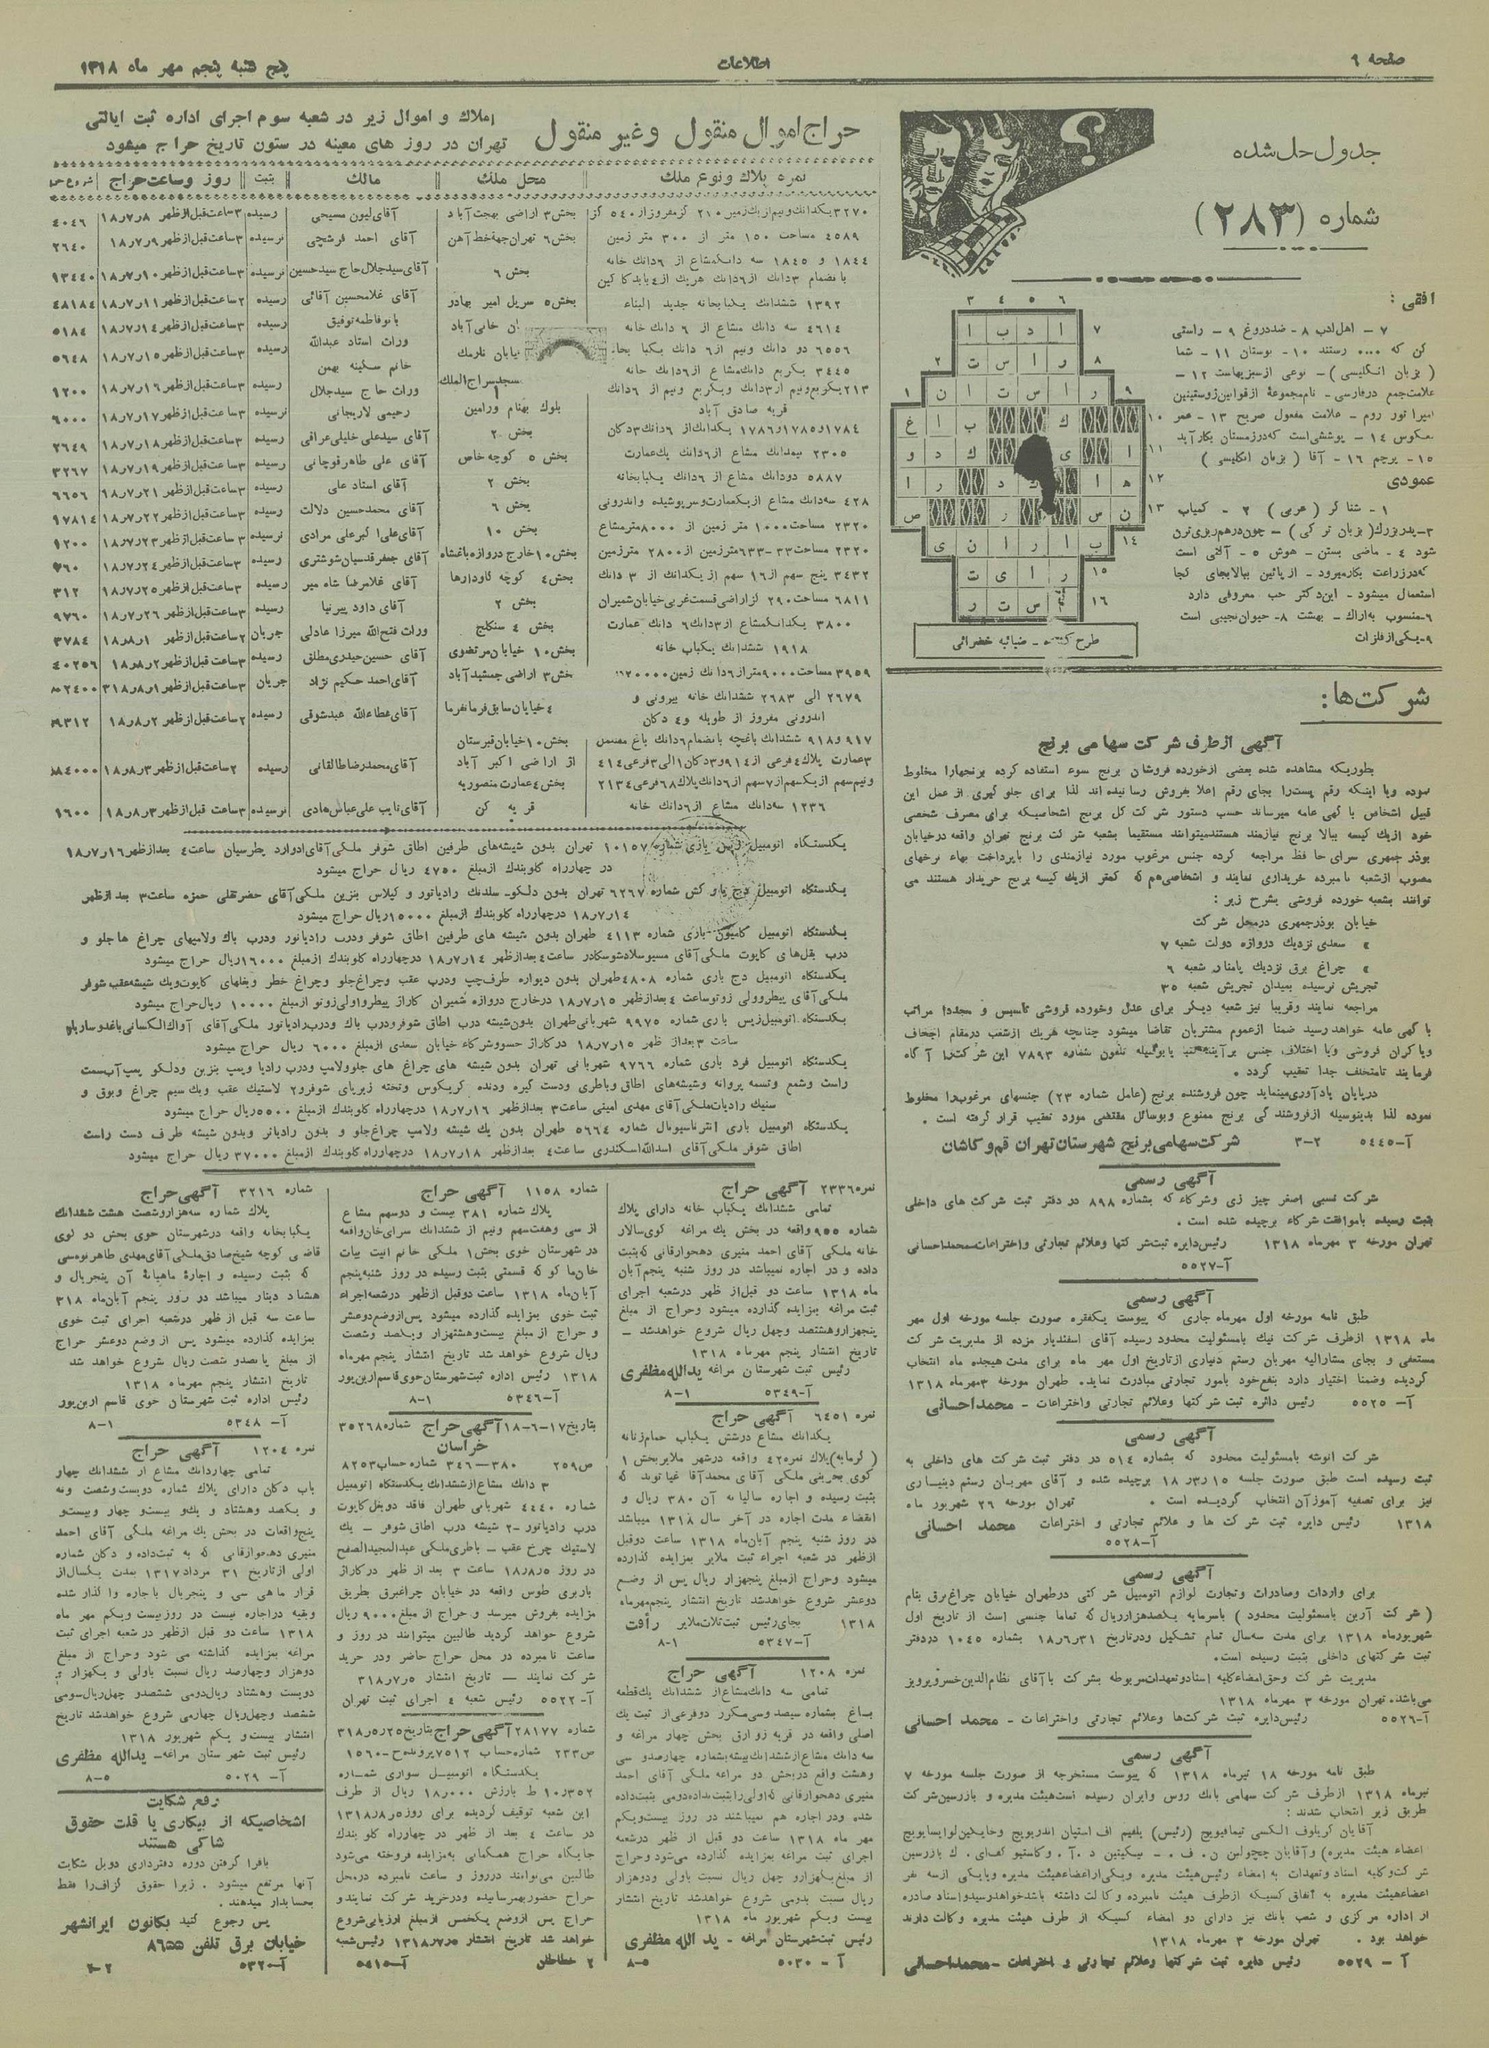 صفحه ٦
اطلاعات
پنج شنبه پنجم مهر ماه ١٣١٨
جدول حل شده
شماره (٢٨٣)
افقی :
٧ - اهل ادب ٨ - ضد دروغ ٩ - راستی
کن که .... رستند ١٠ - بوستان ١١ - شما
( بزبان انگلیسی ) - نوعی از سبزیهاست ١٢ -
علامت جمع در فارسی - نام مجموعهٔ از قوانین ژوستینین
امپراتور روم - علامت مفعول صریح ١٣ - عمر
معکوس ١٤ - پوششی است که در زمستان بکار آید
١٥ - پرچم ١٦ - آقا ( بزبان انگلیسی )
عمودی
١ - شناگر ( عربی ) ٢ - کمیاب
٣ - پدر بزرگ ( بزبان ترکی ) - چون درهم ریزی ترن
شود ٤ - ماضی بستن - هوش ٥ - آلتی است
که در زراعت بکار میرود - از پائین ببالا بجای کجا
استعمال میشود - این دکتر حب معروفی دارد
٦ - منسوب به اراک - بهشت ٨ - حیوان نجیبی است
٩ - یکی از فلزات
ضیائیه خضرائی
شرکت‌ها :
آگهی از طرف شرکت سهامی برنج
بطوریکه مشاهده شده بعضی از خورده فروشان برنج سوء استفاده کرده برنجها را مخلوط
نموده و یا اینکه رقم پست را بجای رقم اعلا بفروش رسانیده اند لذا برای جلوگیری از عمل این
قبیل اشخاص باگهی عامه میرساند حسب دستور شرکت کل برنج اشخاصیکه برای مصرف شخصی
خود از یک کیسه ببالا برنج نیازمند هستند میتوانند مستقیما بشعبه شرکت برنج تهران واقعه در خیابان
بوذر جمهری سرای حافظ مراجعه کرده جنس مرغوب مورد نیازمندی را با پرداخت بهاء نرخهای
مصوب از شعبه نامبرده خریداری نمایند و اشخاصی هم که کمتر از یک کیسه برنج خریدار هستند می
توانند بشعبه خورده فروشی بشرح زیر :
خیابان بوذرجمهری در محل شرکت
» سعدی نزدیک دروازه دولت شعبه ٧
» چراغ برق نزدیک پامنار شعبه ٦
تجریش نرسیده بمیدان تجریش شعبه ٣٥
مراجعه نمایند و قریبا نیز شعبه دیگر برای عدل و خورده فروشی تأسیس و مجددا مراتب
باگهی عامه خواهد رسید ضمنا از عموم مشتریان تقاضا میشود چنانچه هریک از شعب در مقام اجحاف
و یا گران فروشی و یا اختلاف جنس برآیند کتبا یا بوسیله تلفون شماره ٧٨٩٣ این شرکت را آگاه
فرمایند تا متخلف جدا تعقیب گردد .
در پایان یادآوری مینماید چون فروشنده برنج (عامل شماره ٢٣) جنسهای مرغوب را مخلوط
نموده لذا بدینوسیله از فروشندگی برنج ممنوع و بوسائل مقتضی مورد تعقیب قرار گرفته است .
آ-٥٤٤٥ ٣-٢ شرکت سهامی برنج شهرستان تهران قم و کاشان
آگهی رسمی
شرکت نسبی اصغر چیز زی و شرکاء که بشماره ٨٩٨ در دفتر ثبت شرکت های داخلی
بثبت رسیده با موافقت شرکاء برچیده شده است .
تهران مورخه ٣ مهرماه ١٣١٨ رئیس دایره ثبت شرکتها و علائم تجارتی و اختراعات - محمد احسانی
آ-٥٥٢٧
آگهی رسمی
طبق نامه مورخه اول مهرماه جاری که پیوست یکفقره صورت جلسه مورخه اول مهر
ماه ١٣١٨ از طرف شرکت نیک با مسئولیت محدود رسیده آقای اسفندیار مزده از مدیریت شرکت
مستعفی و بجای مشارالیه مهربان رستم دنیاری از تاریخ اول مهر ماه برای مدت هیجده ماه انتخاب
گردیده و ضمنا اختیار دارد بنفع خود بامور تجارتی مبادرت نماید. طهران مورخه ٣ مهرماه ١٣١٨
آ - ٥٥٢٥ رئیس دائره ثبت شرکتها و علائم تجارتی و اختراعات - محمد احسانی
آگهی رسمی
شرکت انوشه بامسئولیت محدود که بشماره ٥١٤ در دفتر ثبت شرکت های داخلی به
ثبت رسیده است طبق صورت جلسه ١٥ر٣ر١٨ برچیده شده و آقای مهربان رستم دینیاری
نیز برای تصفیه آموز آن انتخاب گردیده است . تهران مورخه ٢٦ شهریور ماه
١٣١٨ رئیس دایره ثبت شرکت ها و علائم تجارتی و اختراعات محمد احسانی
آ-٥٥٢٨
آگهی رسمی
برای واردات و صادرات و تجارت لوازم اتومبیل شرکتی در طهران خیابان چراغ برق بنام
( شرکت آرین بامسئولیت محدود ) باسرمایه یکصد هزار ریال که تماما جنسی است از تاریخ اول
شهریورماه ١٣١٨ برای مدت سه سال تمام تشکیل و در تاریخ ٣١ر٦ر١٨ بشماره ١٠٤٥ در دفتر
ثبت شرکتهای داخلی بثبت رسیده است.
مدیریت شرکت وحق امضاء کلیه اسناد و تعهدات مربوطه بشرکت با آقای نظام الدین خسرو پرویز
می باشد. تهران مورخه ٣ مهرماه ١٣١٨
آ-٥٥٢٦ رئیس دایره ثبت شرکت‌ها و علائم تجارتی و اختراعات - محمد احسانی
آگهی رسمی
طبق نامه مورخه ١٨ تیرماه ١٣١٨ که پیوست مستخرجه از صورت جلسه مورخه ٧
تیرماه ١٣١٨ از طرف شرکت سهامی بانک روس و ایران رسیده است هیئت مدیره و بازرسین شرکت
طریق زیر انتخاب شدند :
شرکت و کلیه اسناد و تعهدات به امضاء رئیس هیئت مدیره و یکی از اعضاء هیئت مدیره و یا یکی از سه نفر
اعضاء هیئت مدیره به اتفاق کسیکه از طرف هیئت نامبرده وکالت داشته باشد خواهد رسید و اسناد صادره
از اداره مرکزی و شعب بانک نیز دارای دو امضاء کسیکه از طرف هیئت مدیره وکالت دارند
خواهد بود . تهران مورخه ٣ مهرماه ١٣١٨
آ - ٥٥٢٩ رئیس دایره ثبت شرکتها و علائم تجارتی و اختراعات - محمد احسانی
حراج اموال منقول و غیر منقول
املاک و اموال زیر در شعبه سوم اجرای اداره ثبت ایالتی
تهران در روز های معینه در ستون تاریخ حراج میشود
نمره پلاک و نوع ملک محل ملک مالک ثبت روز و ساعت حراج
٣٢٧٠ یکدانک و نیم از یک زمین ٢١٠ گز مفروز از ٥٤٠ گز بخش ٣ اراضی بهجت آباد آقای لیون مسیحی رسیده ٣ ساعت قبل از ظهر ٨ر٧ر١٨ ٤٠٤٦
٤٥٨٩ مساحت ١٥٠ متر از ٣٠٠ متر زمین بخش ٦ تهران جهة خط آهن آقای احمد فرشچی نرسیده ٣ ساعت قبل از ظهر ٩ر٧ر١٨ ٢٦٤٠
١٨٤٤ و ١٨٤٥ سه دانگ مشاع از ٦ دانک خانه بخش ٦ آقای سید جلال حاج سید حسین نرسیده ٣ ساعت قبل از ظهر ١٠ر٧ر١٨ ٩٣٤٤٠
بانضمام ٣ دانک از ٦ دانک هریک از ٤ باب دکاکین
١٣٩٢ ششدانک یکبابخانه جدید البناء بخش ٥ سرپل امیر بهادر آقای غلامحسین آقائی رسیده ٢ ساعت قبل از ظهر ١١ر٧ر١٨ ٤٨١٨٤
٤٦١٤ سه دانک مشاع از ٦ دانک خانه خانی آباد بانو فاطمه توفیق رسیده ٣ ساعت قبل از ظهر ١٤ر٧ر١٨ ٥١٨٤
٦٥٥٦ دو دانک ونیم از ٦ دانک یکبا وراث استاد عبدالله
٣٤٤٥ یکربع دانک مشاع از ٦ دانک خانه خانم سکینه بهمن رسیده ٣ ساعت قبل از ظهر ١٥ر٧ر١٨ ٥٦٤٨
٢١٣ یکربع ونیم از ٣ دانک و یکربع ونیم از ٦ دانک وراث حاج سید جلال رسیده ٣ ساعت قبل از ظهر ١٦ر٧ر١٨ ١٢٠٠
قریه صادق آباد بلوک بهنام ورامین رحیمی لاریجانی نرسیده ٣ ساعت قبل از ظهر ١٧ر٧ر١٨ ٦٠٠٠
١٧٨٤ و ١٧٨٥ و ١٧٨٦ یکدانک از ٦ دانک ٣ دکان بخش ٢ آقای سید علی خلیلی عراقی رسیده ٣ ساعت قبل از ظهر ١٨ر٧ر١٨ ٢٦٤٩
٢٣٠٥ نیمدانک مشاع از ٦ دانک یک عمارت بخش ٥ کوچه خاص آقای علی طاهر قوچانی رسیده ٣ ساعت قبل از ظهر ١٩ر٧ر١٨ ٣٢٦٧
٥٨٨٧ دو دانک مشاع از ٦ دانک یکبابخانه بخش ٢ آقای استاد علی رسیده ٣ ساعت قبل از ظهر ٢١ر٧ر١٨ ٦٦٥٦
٤٢٨ سه دانک مشاع از یک عمارت و سرپوشیده و اندرونی بخش ٦ آقای محمد حسین دلالت رسیده ٣ ساعت قبل از ظهر ٢٢ر٧ر١٨ ٩٧٨١٤
٢٣٢٠ مساحت ١٠٠٠ متر زمین از ٨٠٠٠ متر مشاع بخش ١٠ آقای علی اکبر علی مرادی نرسیده ٣ ساعت قبل از ظهر ٢٣ر٧ر١٨ ١٢٠٠
٢٣٢٠ مساحت ٣٣-٦٣٣ متر زمین از ٢٨٠٠ متر زمین بخش ١٠ خارج دروازه باغشاه آقای جعفر قدسیان شوشتری رسیده ٣ ساعت قبل از ظهر ٢٤ر٧ر١٨ ٧٦٠
٣٤٣٢ پنج سهم از ١٦ سهم از یکدانک از ٣ دانک بخش ٤ کوچه گاودارها آقای غلامرضا شاه میر رسیده ٣ ساعت قبل از ظهر ٢٥ر٧ر١٨ ٣١٢
٦٨١١ مساحت ٢٩٠ گز اراضی قسمت غربی خیابان شمیران بخش ٢ آقای داود پیرنیا رسیده ٣ ساعت قبل از ظهر ٢٦ر٧ر١٨ ٩٧٦٠
٣٨٠٠ یکدانک مشاع از ٣ دانک ٦ دانک عمارت بخش ٤ سنگلج وراث فتح الله میرزا عادلی جریان ٢ ساعت قبل از ظهر ١ر٨ر١٨ ٣٧٨٤
١٩١٨ ششدانک یکباب خانه بخش ١٠ خیابان مرتضوی آقای حسین حیدری مطلق رسیده ٣ ساعت قبل از ظهر ٢ر٨ر١٨ ٤٠٢٥٦
٣٩٥٩ مساحت ٩٠٠٠ متر از ٦ دانک زمین بخش ٣ اراضی جمشید آباد آقای احمد حکیم نژاد جریان ٣ ساعت قبل از ظهر
٢٦٧٩ الی ٢٦٨٣ ششدانک خانه بیرونی و ٤ خیابان سابق فرمانفرما آقای عطاءالله عبدشوقی رسیده ٢ ساعت قبل از ظهر ٢ر٨ر١٨
اندرونی مفروز از طویله و ٤ دکان
٩١٧ و ٩١٨ ششدانک باغچه بانضمام ٦ دانک باغ مشتمل بخش ١٠ خیابان قبرستان
٣ عمارت پلاک ٤ فرعی از ٩١٤ و ٣ دکان ١ الی ٣ فرعی ٤١٤ از اراضی اکبر آباد آقای محمدرضا طالقانی رسیده ٢ ساعت قبل از ظهر ٣ر٨ر١٨
ونیم سهم از یکسهم از ٧ سهم از ٦ دانک پلاک ٦٨ فرعی ٢١٣٤ بخش ٤ عمارت منصوریه
١٢٣٦ سه دانک مشاع از ٦ دانک خانه قریه کن آقای نایب علی عباس هادی نرسیده ٣ ساعت قبل از ظهر ٣ر٨ر١٨ ١٦٠٠
یکدستگاه اتومبیل زیس باری شماره ١٠١٥٧ تهران بدون شیشه‌های طرفین اطاق شوفر ملکی آقای ادوارد پطرسیان ساعت ٤ بعد از ظهر ١٦ر٧ر١٨
در چهارراه گلوبندک از مبلغ ٤٧٥٠ ریال حراج میشود
یکدستگاه اتومبیل دج بارکش شماره ٦٢٦٧ تهران بدون دلکو - سلدنک رادیاتور و گیلاس بنزین ملکی آقای حضرتقلی حمزه ساعت ٣ بعد از ظهر
١٤ر٧ر١٨ در چهارراه گلوبندک از مبلغ ١٥٠٠٠ ریال حراج میشود
یکدستگاه اتومبیل کامیون باری شماره ٤١١٣ طهران بدون شیشه های طرفین اطاق شوفر و درب رادیاتور و درب باک و لامپهای چراغ ها جلو و
درب بقل‌های کاپوت ملکی آقای مسیو سلادشوسکادر ساعت ٤ بعد از ظهر ١٤ر٧ر١٨ در چهارراه گلوبندک از مبلغ ١٦٠٠٠ ریال حراج میشود
یکدستگاه اتومبیل دج باری شماره ٤٨٠٨ طهران بدون دیواره طرف چپ و درب عقب و چراغ جلو و چراغ خطر و بغلهای کاپوت و یک شیشه عقب شوفر
ملکی آقای پیطروولی زوتو ساعت ٤ بعد از ظهر ١٥ر٧ر١٨ در خارج دروازه شمیران گاراژ پیطرو اولی زوتو از مبلغ ١٠٠٠٠ ریال حراج میشود
یکدستگاه اتومبیل زیس باری شماره ٩٩٧٥ شهربانی طهران بدون شیشه درب اطاق شوفر و درب باک و درب رادیاتور ملکی آقای آواک الکسانی باغدوساریان
ساعت ٣ بعد از ظهر ١٥ر٧ر١٨ در گاراژ حسو و شرکاء خیابان سعدی از مبلغ ٦٠٠٠ ریال حراج میشود
یکدستگاه اتومبیل فرد باری شماره ٩٧٦٦ شهربانی تهران بدون شیشه های چراغ های جلو و لامپ و درب رادیا و پمپ بنزین و دلکو پمپ آب سمت
راست و شمع و تسمه پروانه و شیشه‌های اطاق و باطری و دست گیره و دنده کریکوس و تخته زیرپای شوفر و ٢ لاستیک عقب و یک سیم چراغ و بوق و
سنیک رادیات ملکی آقای مهدی امینی ساعت ٣ بعد از ظهر ١٦ر٧ر١٨ در چهارراه گلوبندک از مبلغ ٥٥٠٠ ریال حراج میشود
یکدستگاه اتومبیل باری انترناسیونال شماره ٥٦٦٤ طهران بدون یک شیشه و لامپ چراغ جلو و بدون رادیاتر و بدون شیشه طرف دست راست
اطاق شوفر ملکی آقای اسدالله اسکندری ساعت ٤ بعد از ظهر ١٨ر٧ر١٨ در چهارراه گلوبندک از مبلغ ٣٧٠٠٠ ریال حراج میشود
نمره ٢٣٣٦ آگهی حراج
تمامی ششدانک یکباب خانه دارای پلاک
شماره ٩٥٥ واقعه در بخش یک مراغه کوی سالار
خانه ملکی آقای احمد منیری دهخوارقانی که بثبت
داده و در اجاره نمیباشد در روز شنبه پنجم آبان
ماه ١٣١٨ ساعت دو قبل از ظهر در شعبه اجرای
ثبت مراغه بمزایده گذارده میشود و حراج از مبلغ
پنجهزار و هشتصد و چهل ریال شروع خواهد شد -
تاریخ انتشار پنجم مهرماه ١٣١٨
رئیس ثبت شهرستان مراغه یدالله مظفری
آ-٥٣٤٩ ٨-١
نمره ٦٤٥١ آگهی حراج
یکدانک مشاع در شش یکباب حمام زنانه
( گرمابه ) پلاک نمره ٤٢ واقعه در شهر ملایر بخش ١
کوی بحرینی ملکی آقای محمد آقا غیاثوند که
بثبت رسیده و اجاره سالیانه آن ٣٨٠ ریال و
انقضاء مدت اجاره در آخر سال ١٣١٨ میباشد
در روز شنبه پنجم آبان ماه ١٣١٨ ساعت دو قبل
از ظهر در شعبه اجراء ثبت ملایر بمزایده گذارده
میشود و حراج از مبلغ پنجهزار ریال پس از وضع
دو عشر شروع خواهد شد تاریخ انتشار پنجم مهرماه
١٣١٨ بجای رئیس ثبت ثلاث ملایر رأفت
آ-٥٣٤٧ ٨-١
نمره ١٢٠٨ آگهی حراج
تمامی سه دانک مشاع از ششدانک یک قطعه
باغ بشماره سیصد و سی مکرر دو فرعی از ثبت یک
اصلی واقعه در قریه زوارق بخش چهار مراغه و
سه دانک مشاع از ششدانک بیشه بشماره چهارصد و سی
و هشت واقع در بخش دو مراغه ملکی آقای احمد
منیری دهخوارقانی که اولی را بثبت داده دومی بثبت داده
شده و در اجاره هم نمیباشند در روز بیست و یکم
مهر ماه ١٣١٨ ساعت دو قبل از ظهر در شعبه
اجرای ثبت مراغه بمزایده گذارده می‌شود و حراج
از مبلغ یکهزار و چهل ریال نسبت باولی و دو هزار
ریال نسبت بدومی شروع خواهد شد تاریخ انتشار
بیست و یکم شهریور ماه ١٣١٨
رئیس ثبت شهرستان مراغه - یدالله مظفری
آ - ٥٠٣٠ ٨-٥
شماره ١١٥٨ آگهی حراج
پلاک شماره ٣٨١ بیست و دو سهم مشاع
از سی و هفت سهم و نیم از ششدانک سرای خان واقعه
در شهرستان خوی بخش ١ ملکی خانم انیت بیات
خان ماکو که قسمتی بثبت رسیده در روز شنبه پنجم
آبان ماه ١٣١٨ ساعت دو قبل از ظهر در شعبه اجراء
ثبت خوی بمزایده گذارده میشود پس از وضع دو عشر
و حراج از مبلغ بیست و هشتهزار و یکصد و شصت
ریال شروع خواهد شد تاریخ انتشار پنجم مهرماه
١٣١٨ رئیس اداره ثبت شهرستان خوی قاسم ارین پور
آ-٥٣٤٦ ٨-١
بتاریخ ١٧-٦-١٨ آگهی حراج شماره ٣٥٢٦٨
خراسان
ص ٢٥٩ ٣٨٠ - ٣٤٦ شماره حساب ٨٢٥٣
٣ دانک مشاع از ششدانک یکدستگاه اتومبیل
شماره ٤٤٤٠ شهربانی طهران فاقد دو بغل کاپوت
درب رادیاتور - ٢ شیشه درب اطاق شوفر - یک
لاستیک چرخ عقب - باطری ملکی عبدالمجید الصفح
در روز ٥ر٨ر١٨ ساعت ٣ بعد از ظهر در گاراژ
باربری طوس واقعه در خیابان چراغ برق بطریق
مزایده بفروش میرسد و حراج از مبلغ ٩٠٠٠ ریال
شروع خواهد گردید طالبین میتوانند در روز و
ساعت نامبرده در محل حراج حاضر و در خرید
شرکت نمایند - تاریخ انتشار ٥ر٧ر٣١٨
آ-٥٥٢٢ رئیس شعبه ٤ اجرای ثبت تهران
شماره ٢٨١٧٧ آگهی حراج بتاریخ ٢٥ر٥ر٣١٨
ص ٢٣٣ شماره حساب ٧٥١٢ پرونده ح-١٥٦٠
یکدستگاه اتومبیل سواری شماره
١٠ر٣٥٢ ط بارزش ١٨٠٠٠ ریال از طرف
این شعبه توقیف گردیده برای روز ٥ر٨ر١٣١٨
در ساعت ٤ بعد از ظهر در چهارراه گلوبندک
جایگاه حراج همگانی بمزایده فروخته میشود
طالبین می‌توانند در روز و ساعت نامبرده در محل
حراج حضور بهمرسانیده و در خرید شرکت نمایند و
حراج پس از وضع یکخمس از مبلغ ارزیابی شروع
خواهد شد تاریخ انتشار ٥ر٧ر١٣١٨ رئیس شعبه
٢ خطاطان آ-٥٤١٥
شماره ٣٢١٦ آگهی حراج
پلاک شماره سه هزار و شصت هشت ششدانک
یکبابخانه واقعه در شهرستان خوی بخش دو کوی
قاضی کوچه شیخ صادق ملکی آقای مهدی طاهر نوه سی
که بثبت رسیده و اجارهٔ ماهیانهٔ آن پنجریال و
هشتاد دینار میباشد در روز پنجم آبان ماه ٣١٨
ساعت سه قبل از ظهر در شعبه اجرای ثبت خوی
بمزایده گذارده میشود پس از وضع دو عشر حراج
از مبلغ پانصد و شصت ریال شروع خواهد شد
تاریخ انتشار پنجم مهرماه ١٣١٨
رئیس اداره ثبت شهرستان خوی قاسم ارین پور
آ- ٥٣٤٨ ٨-١
نمره ١٢٠٤ آگهی حراج
تمامی چهار دانک مشاع از ششدانک چهار
باب دکان دارای پلاک شماره دویست و شصت و نه
و یکصد و هشتاد و یک و بیست و چهار و بیست و
پنج واقعات در بخش یک مراغه ملکی آقای احمد
منیری دهخوارقانی که به ثبت داده و دکان شماره
اولی از تاریخ ٣١ مرداد ١٣١٧ بمدت یکسال از
قرار ماهی سی و پنجریال باجاره واگذار شده
و بقیه در اجاره نیست در روز بیست و یکم مهر ماه
١٣١٨ ساعت دو قبل از ظهر در شعبه اجرای ثبت
مراغه بمزایده گذاشته می شود و حراج از مبلغ
دو هزار و چهارصد ریال نسبت باولی و یکهزار و
دویست و هشتاد ریال دومی ششصد و چهل ریال سومی
ششصد و چهل ریال چهارمی شروع خواهد شد تاریخ
انتشار بیست و یکم شهریور ١٣١٨
رئیس ثبت شهرستان مراغه - یدالله مظفری
آ- ٥٠٢٩ ٨-٥
رفع شکایت
اشخاصیکه از بیکاری یا قلت حقوق
شاکی هستند
بافرا گرفتن دوره دفترداری دوبل شکایت
آنها مرتفع میشود . زیرا حقوق گزاف را فقط
بحسابدار میدهند .
پس رجوع کنید بکانون ایرانشهر
خیابان برق تلفن ٨٦٥٥
آ-٥٣٢٠